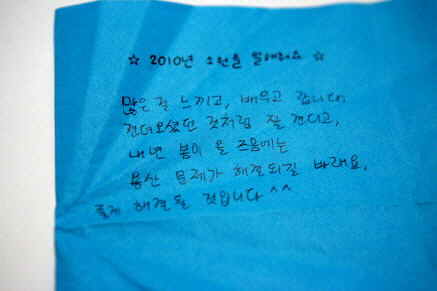 ☆ 2010년 소원을 말해줘요 ☆
많은걸 느끼고, 배우고 갑니다.
견뎌오셨던 것처럼 잘 견디고,
내년 봄이 올 즈음에는
용산 문제가 해결되길 바래요.
좋게 해결될 것입니다 ^^